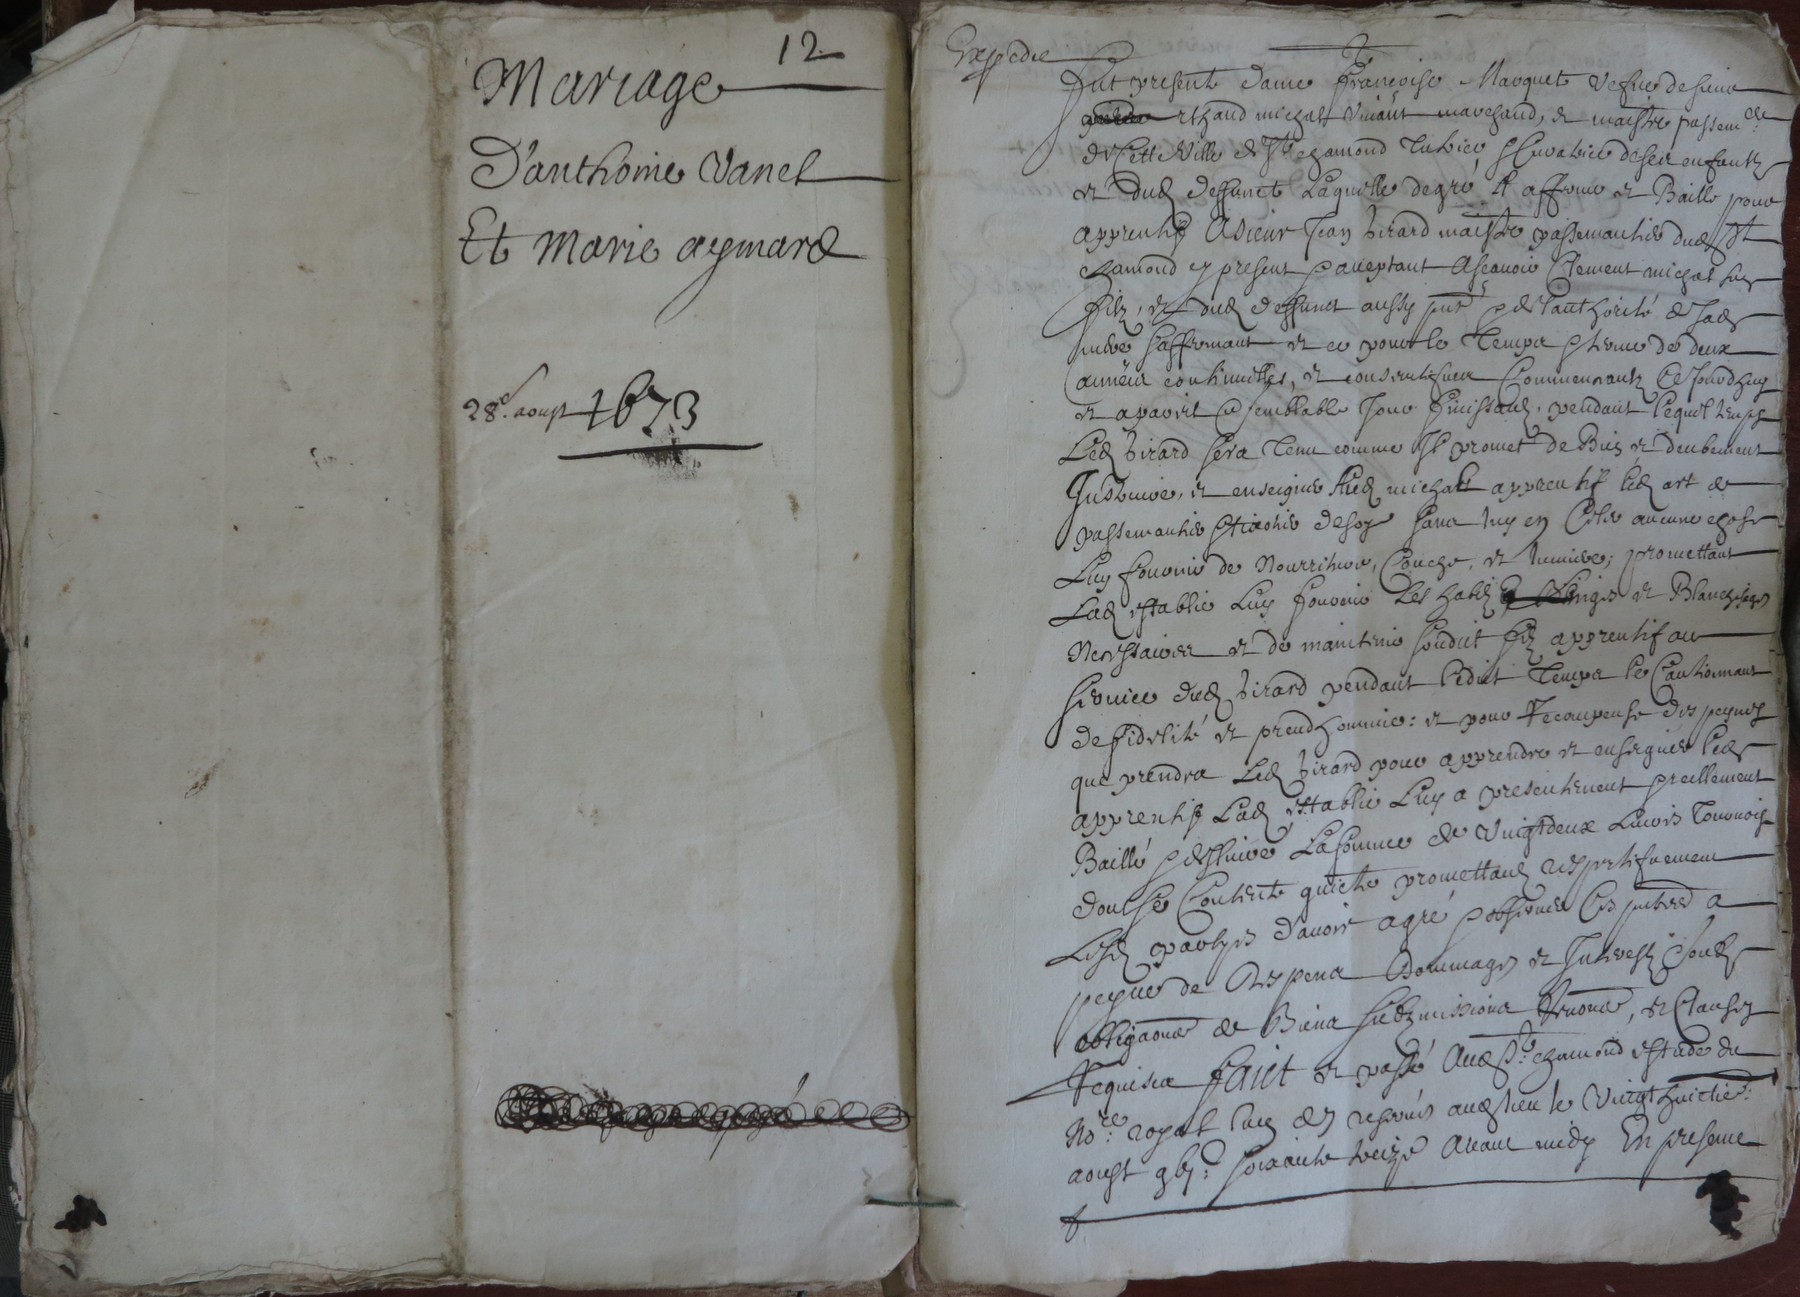 12
Mariage
D'anthoine Vanel
Et Marie aymard
28e. aoust 1673
Expedie
Fut presente dame Françoise Marquet vefve de sieur
michel vivant marchand, et maistre passem
de cette ville de St chamond tutrice de ses enfantz
et dud deffunct laquelle de gré a affermé et Baillé pour
apprentif a sieur Jean Girard maistre passemantier dud St
chamond cy present acceptant Ascavoir Clement michel son
filz, et dud deffunct aussy pnt de l'authorité de sad
mere s'affermant et ce pour le Temps terme de deux
années continuelles, et consecutifves Commenceantz Cejourdhuy
et a pareil et semblable Jour finissant, pendant lequel temps
Led Girard sera tenu comme Il promet de Bien et deubement
Instruire, et enseigner Aud michel apprentif led art de
passemantier de soye sans luy en celer aucune chose
Luy fournir de Nourriture, Couche, et lumiere; promettant
Lad establie Luy fournir les habitz Linges et Blanchissages
Necessaires et de maintenir sondit filz apprentif au
service dud Girard pendant ledict Temps le Cautionnant
de fidelité et preudhommie: et pour Recompense des peynes
que prendra Led Girard pour apprendre et enseigner led
apprentif Lad establie Luy a presentement reellement
Baillé delivré La somme de Vingt deux Livres Tournois
dont se Contente quicte promettant respectifvement
Lesd partyes d'avoir agré observer Ces pntes a
peyne de Despens Dommages et Interestz soubz
obligaons de Biens submissions Renons, et Clauses
Requises faict et passé Aud St. chamond estude du
Nore. royal avant lieu le Vingt huictie.
aoust soixante treize Avant midy En presence